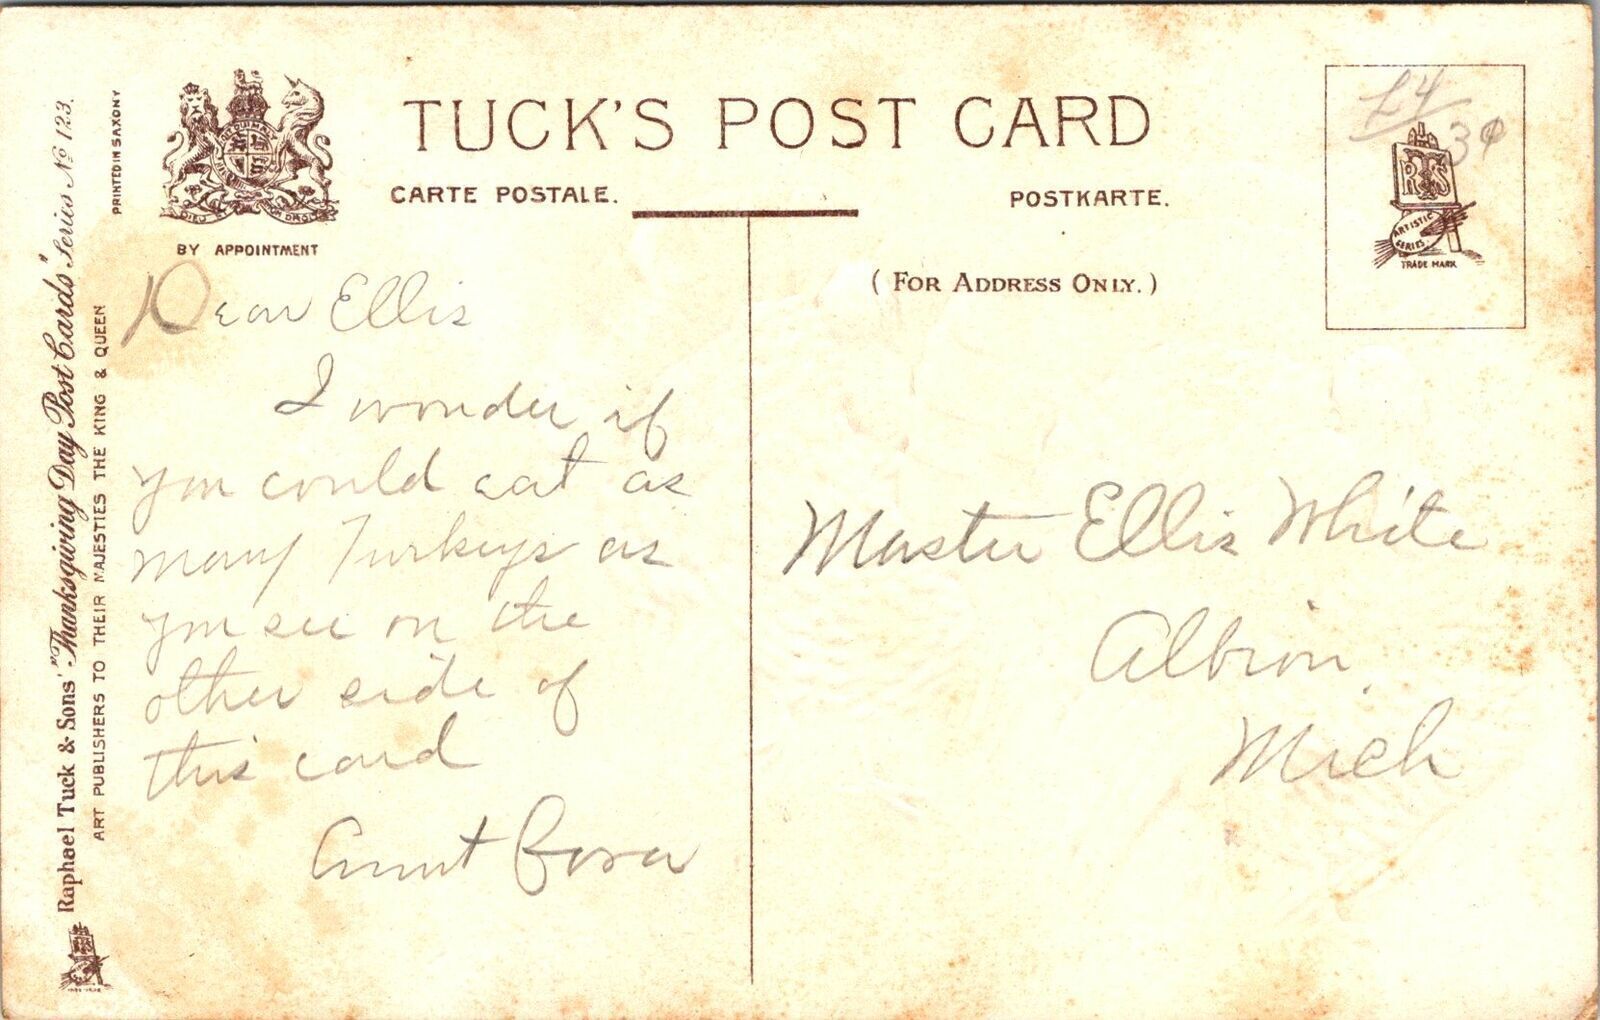 TUCK'S POST CARD
CARTE POSTALE.
POSTKARTE.
BY APPOINTMENT
(FOR ADDRESS ONLY.)
PRINTED IN SAXONY
Raphael Tuck & Sons' "Thanksgiving Day Post Cards" Series No 123.
ART PUBLISHERS TO THEIR MAJESTIES THE KING & QUEEN
DIEU ET MON DROIT
£4
3¢
RTS
ARTISTIC
SERIES
TRADE MARK
Dear Ellis
I wonder if
you could eat as
many Turkeys as
you see on the
other side of
this card
Aunt Cora
Master Ellis White
Albion,
Mich